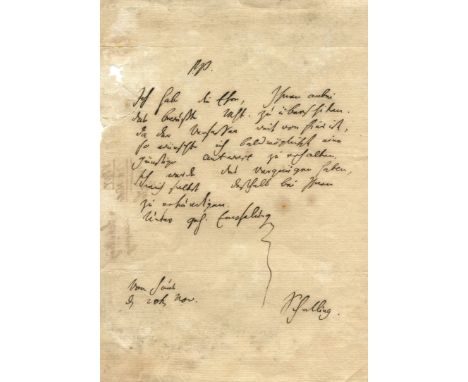 Ich habe die Ehre, Ihnen anbei
das bewußte Mst. zu übersenden.
Da der Verfasser weit von hier ist,
so wünschte ich baldmöglichst eine
günstige Antwort zu erhalten.
Ich werde das Vergnügen haben,
mich selbst deshalb bei Ihnen
zu erkundigen.
Unter Empfehlung
Von Haus
Nov.
Schelling.